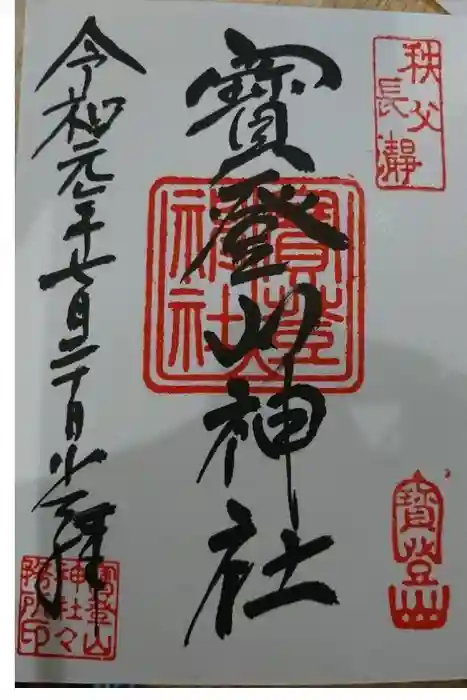 秩父
長瀞
寶登山神社
寶登山
神社
令和元年七月二十日参拝
寶登山
寶登山
神社々
務所印